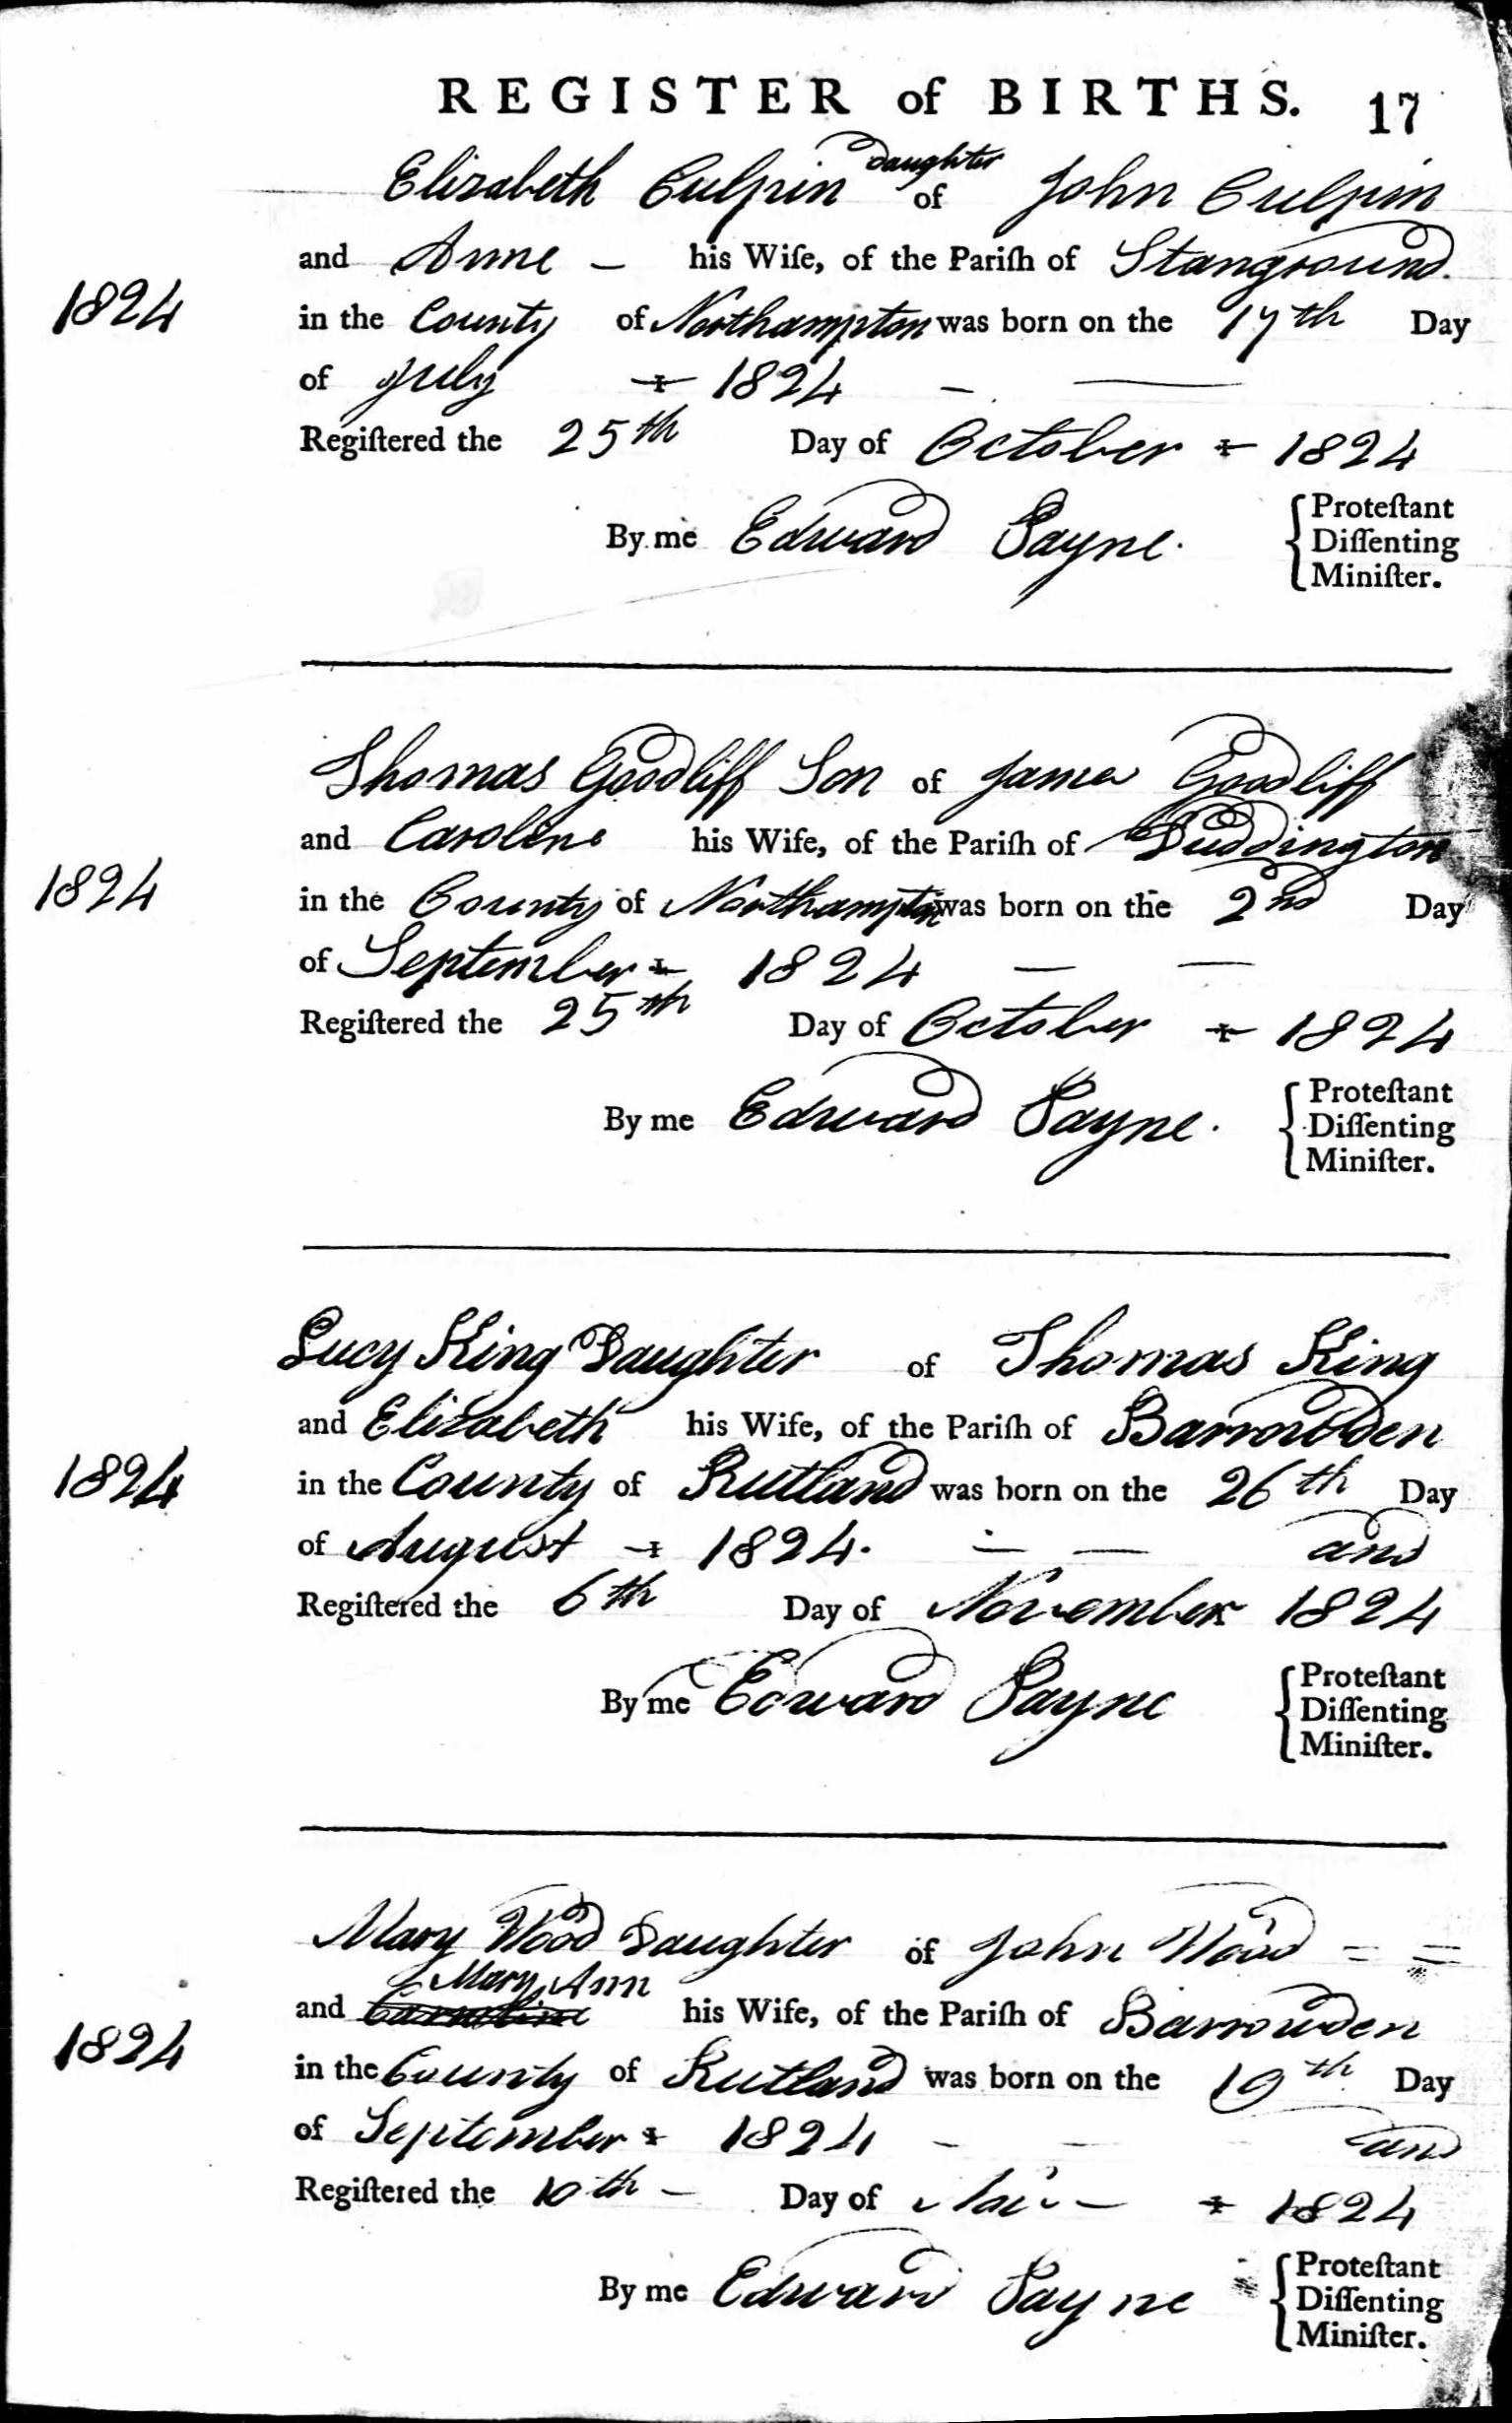 REGISTER of BIRTHS. 17
Daughter
Elizabeth Culpin of John Culpin
and Anne - his Wife, of the Pariſh of Stanground.
1824
in the County of Northampton was born on the 17th Day
of July + 1824 - —
Regiſtered the 25th Day of October + 1824
By me Edward Payne. { Proteſtant
Diſſenting
Miniſter.
Thomas Goodliff Son of James Goodliff
and Caroline his Wife, of the Pariſh of Duddington
1824
in the County of Northampton was born on the 2nd Day
of September + 1824 — —
Regiſtered the 25th Day of October + 1824
By me Edward Payne. { Proteſtant
Diſſenting
Miniſter.
Lucy King Daughter of Thomas King
and Elizabeth his Wife, of the Pariſh of Barrowden
1824
in the County of Rutland was born on the 26th Day
of August + 1824. — — and
Regiſtered the 6th Day of November 1824
By me Edward Payne { Proteſtant
Diſſenting
Miniſter.
Mary Wood Daughter of John Wood = =
Mary Ann
and Caroline his Wife, of the Pariſh of Barrowden
1824
in the County of Rutland was born on the 19th Day
of September + 1824 - - and
Regiſtered the 10th - Day of Nov. - + 1824
By me Edward Payne { Proteſtant
Diſſenting
Miniſter.